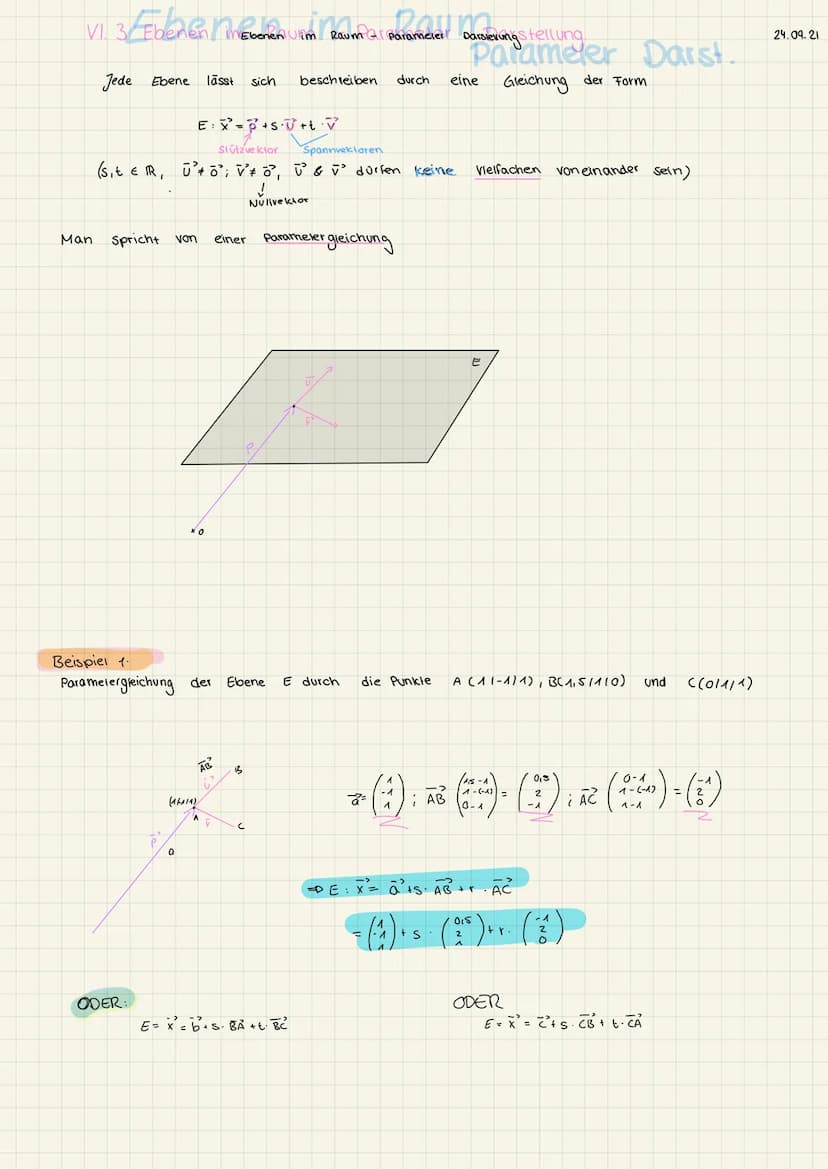 VI. 3 Ebenen im Raum - Parameter Darstellung
Ebenen im Raum
Parameter Darst.
24.09.21
Jede Ebene lässt sich beschreiben durch eine Gleichung der Form
E : x⃗ = p⃗ + s · u⃗ + t · v⃗
Stützvektor Spannvektoren
(s,t ∈ ℝ, u⃗ ≠ o⃗; v⃗ ≠ o⃗, u⃗ & v⃗ dürfen keine Vielfachen voneinander sein)
Nullvektor
Man spricht von einer Parametergleichung
E
u⃗
v⃗
p
O
Beispiel 1.
Parametergleichung der Ebene E durch die Punkte A (1|-1|1), B(1,5|1|0) und C(0|1|1)
AB⃗
B
u⃗
A
v⃗
C
p⃗
a⃗ = (1 -1 1) ; AB⃗ (1,5-1 1-(-1) 0-1) = (0,5 2 -1) ; AC⃗ (0-1 1-(-1) 1-1) = (-1 2 0)
=> E : x⃗ = a⃗ + s · AB⃗ + r · AC⃗
= (1 -1 1) + s · (0,5 2 1) + r · (-1 2 0)
ODER:
E = x⃗ = b⃗ + s · BA⃗ + t · BC⃗
ODER
E = x⃗ = c⃗ + s · CB⃗ + t · CA⃗